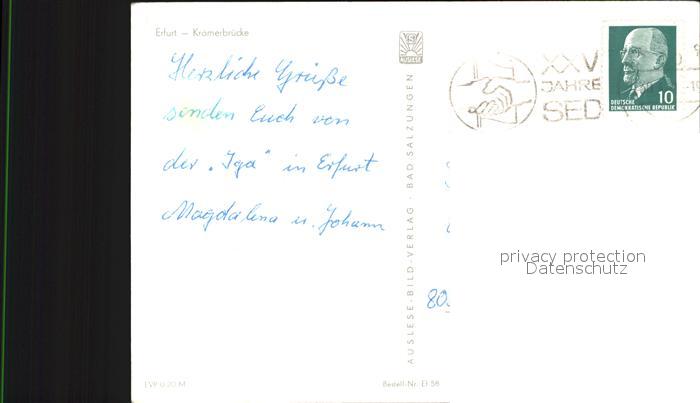 Erfurt — Krämerbrücke
Herzliche Grüße
senden Euch von
der „Iga" in Erfurt
Magdalena u. Johann
EVP 0.20 M
Bestell-Nr. EI 58
AUSLESE
AUSLESE-BILD-VERLAG · BAD SALZUNGEN
XXV
JAHRE
SED
10
DEUTSCHE
DEMOKRATISCHE REPUBLIK
80
privacy protection
Datenschutz